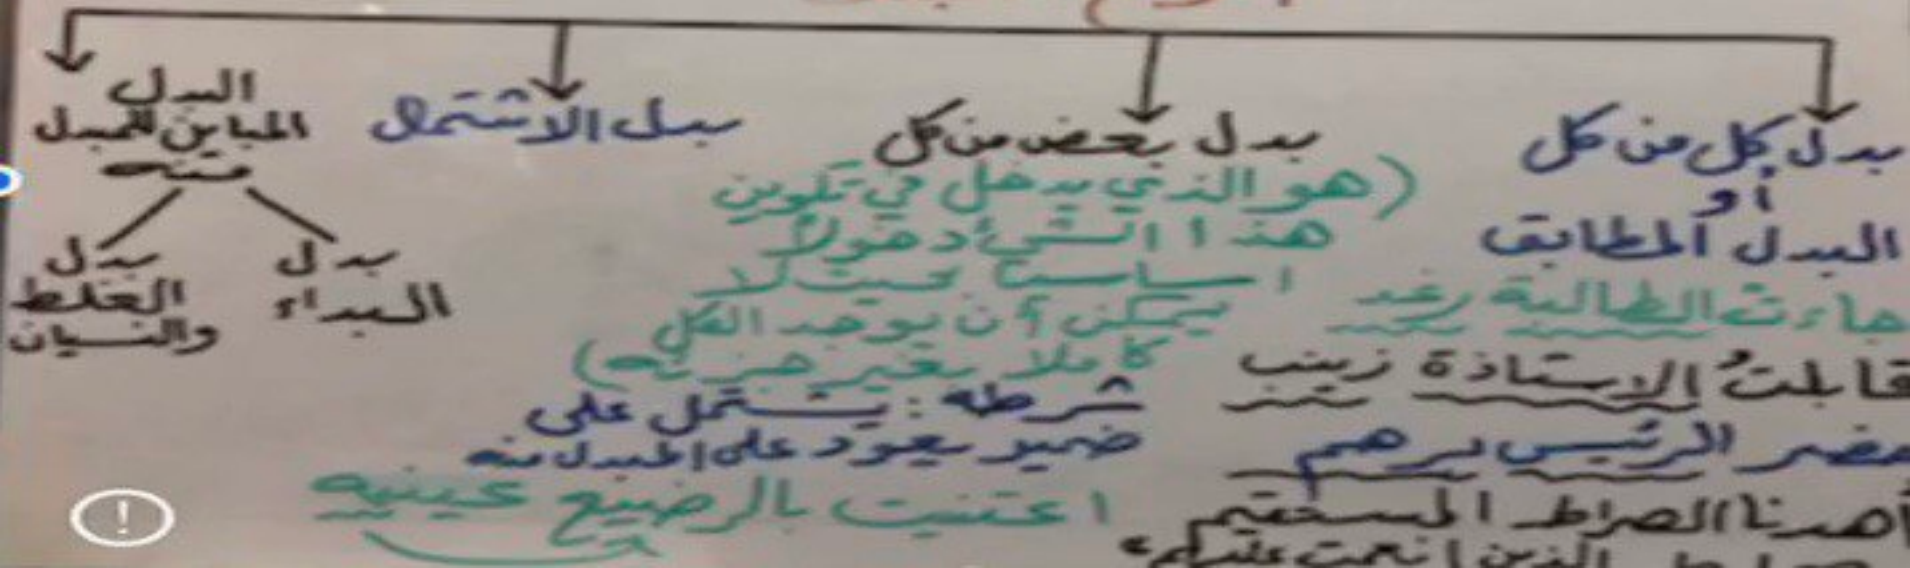 بدل كل من كل
أو
البدل المطابق
جاءت الطالبة رغد
قابلتُ الاستاذة زينب
حضر الرئيس برهم
أهدنا الصراط المستقيم
الذين انعمت عليهم
بدل بعض من كل
(هو الذي يدخل في تكوين
هذا الشيء دخولاً
اساسياً بحيث لا
يمكن أن يوجد الكل
كاملا بغير جزئه)
شرطه: يشتمل على
ضمير يعود على المبدل منه
اعتنيت بالرضيع عينيه
بدل الاشتمال
البدل
المباين للمبدل
منه
بدل
البداء
بدل
الغلط
والنسيان